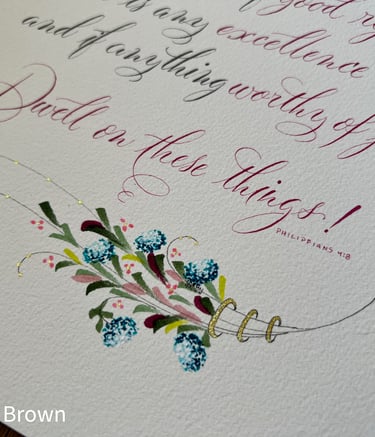 is any excellence
and if anything worthy of
Dwell on these things!
PHILIPPIANS 4:8
Brown